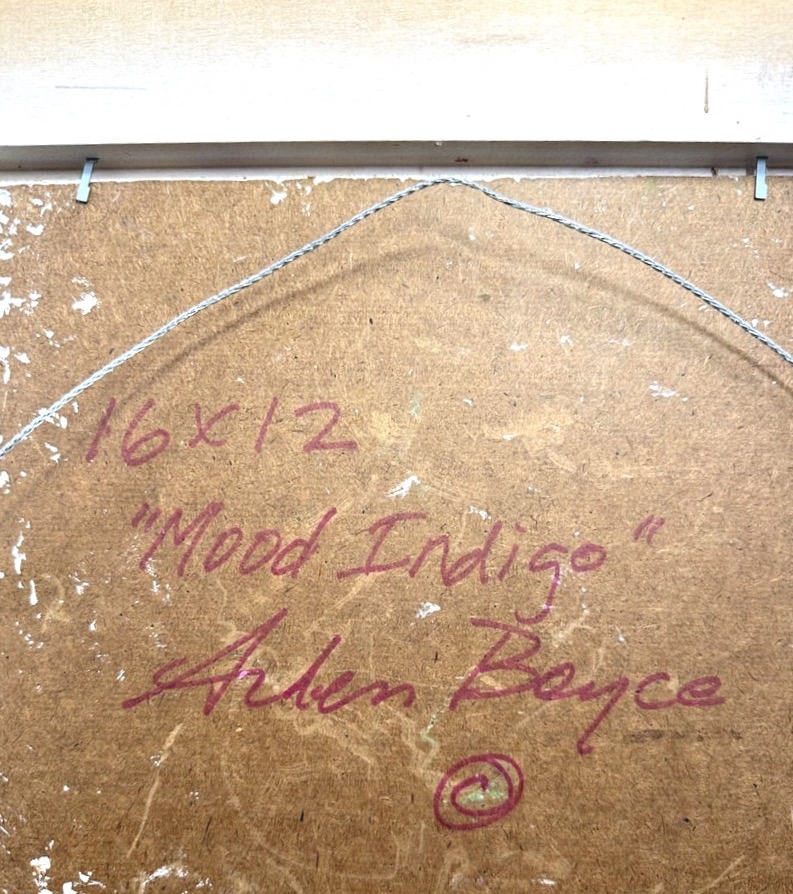 16x12
"Mood Indigo"
Arlen Boyce
©